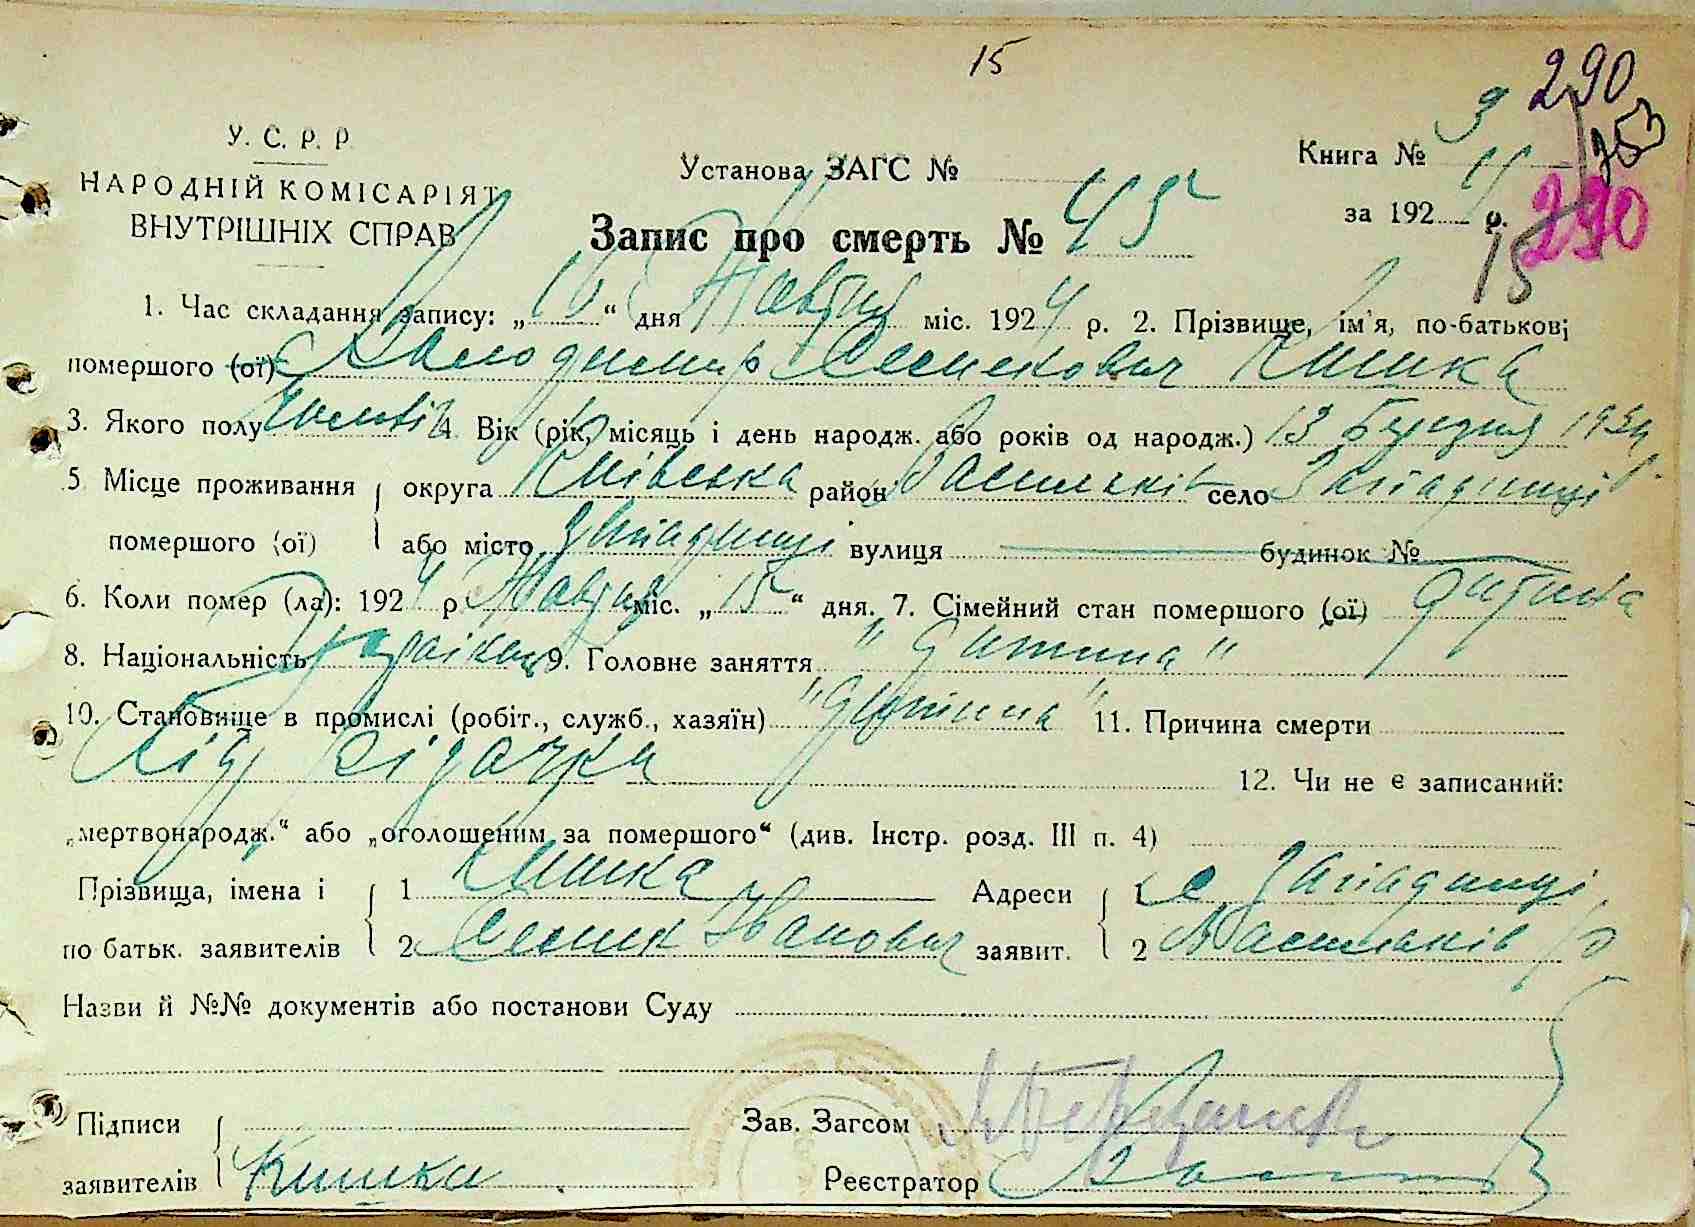 15
290
У. С. Р. Р.
НАРОДНІЙ КОМІСАРІЯТ
ВНУТРІШНІХ СПРАВ
Установа ЗАГС №
Книга № 3
за 192 4 р.
290
15
Запис про смерть № 45
1. Час складання запису: „16“ дня Жовтня міс. 1924 р. 2. Прізвище, ім'я, по-батькові
помершого (ої) Володимир Кишка
3. Якого полу 4. Вік (рік, місяць і день народж. або років од народж.) 13 березня 1924 р.
5. Місце проживання округа Київська район Васильків село Западинці
помершого (ої) або місто Западинці вулиця будинок №
6. Коли помер (ла): 1924 р Жовтня міс. „15“ дня. 7. Сімейний стан помершого (ої) дитина
8. Національність україн. 9. Головне заняття "дитина"
10. Становище в промислі (робіт., служб., хазяїн) "дитина" 11. Причина смерти
Від
12. Чи не є записаний:
„мертвонародж.“ або „оголошеним за помершого“ (див. Інстр. розд. III п. 4)
Прізвища, імена і 1 Кишка Адреси 1 с Западинці
по батьк. заявителів 2 Іванович заявит. 2 Васильків р
Назви й №№ документів або постанови Суду
Підписи
Зав. Загсом
заявителів Кишка
Реєстратор